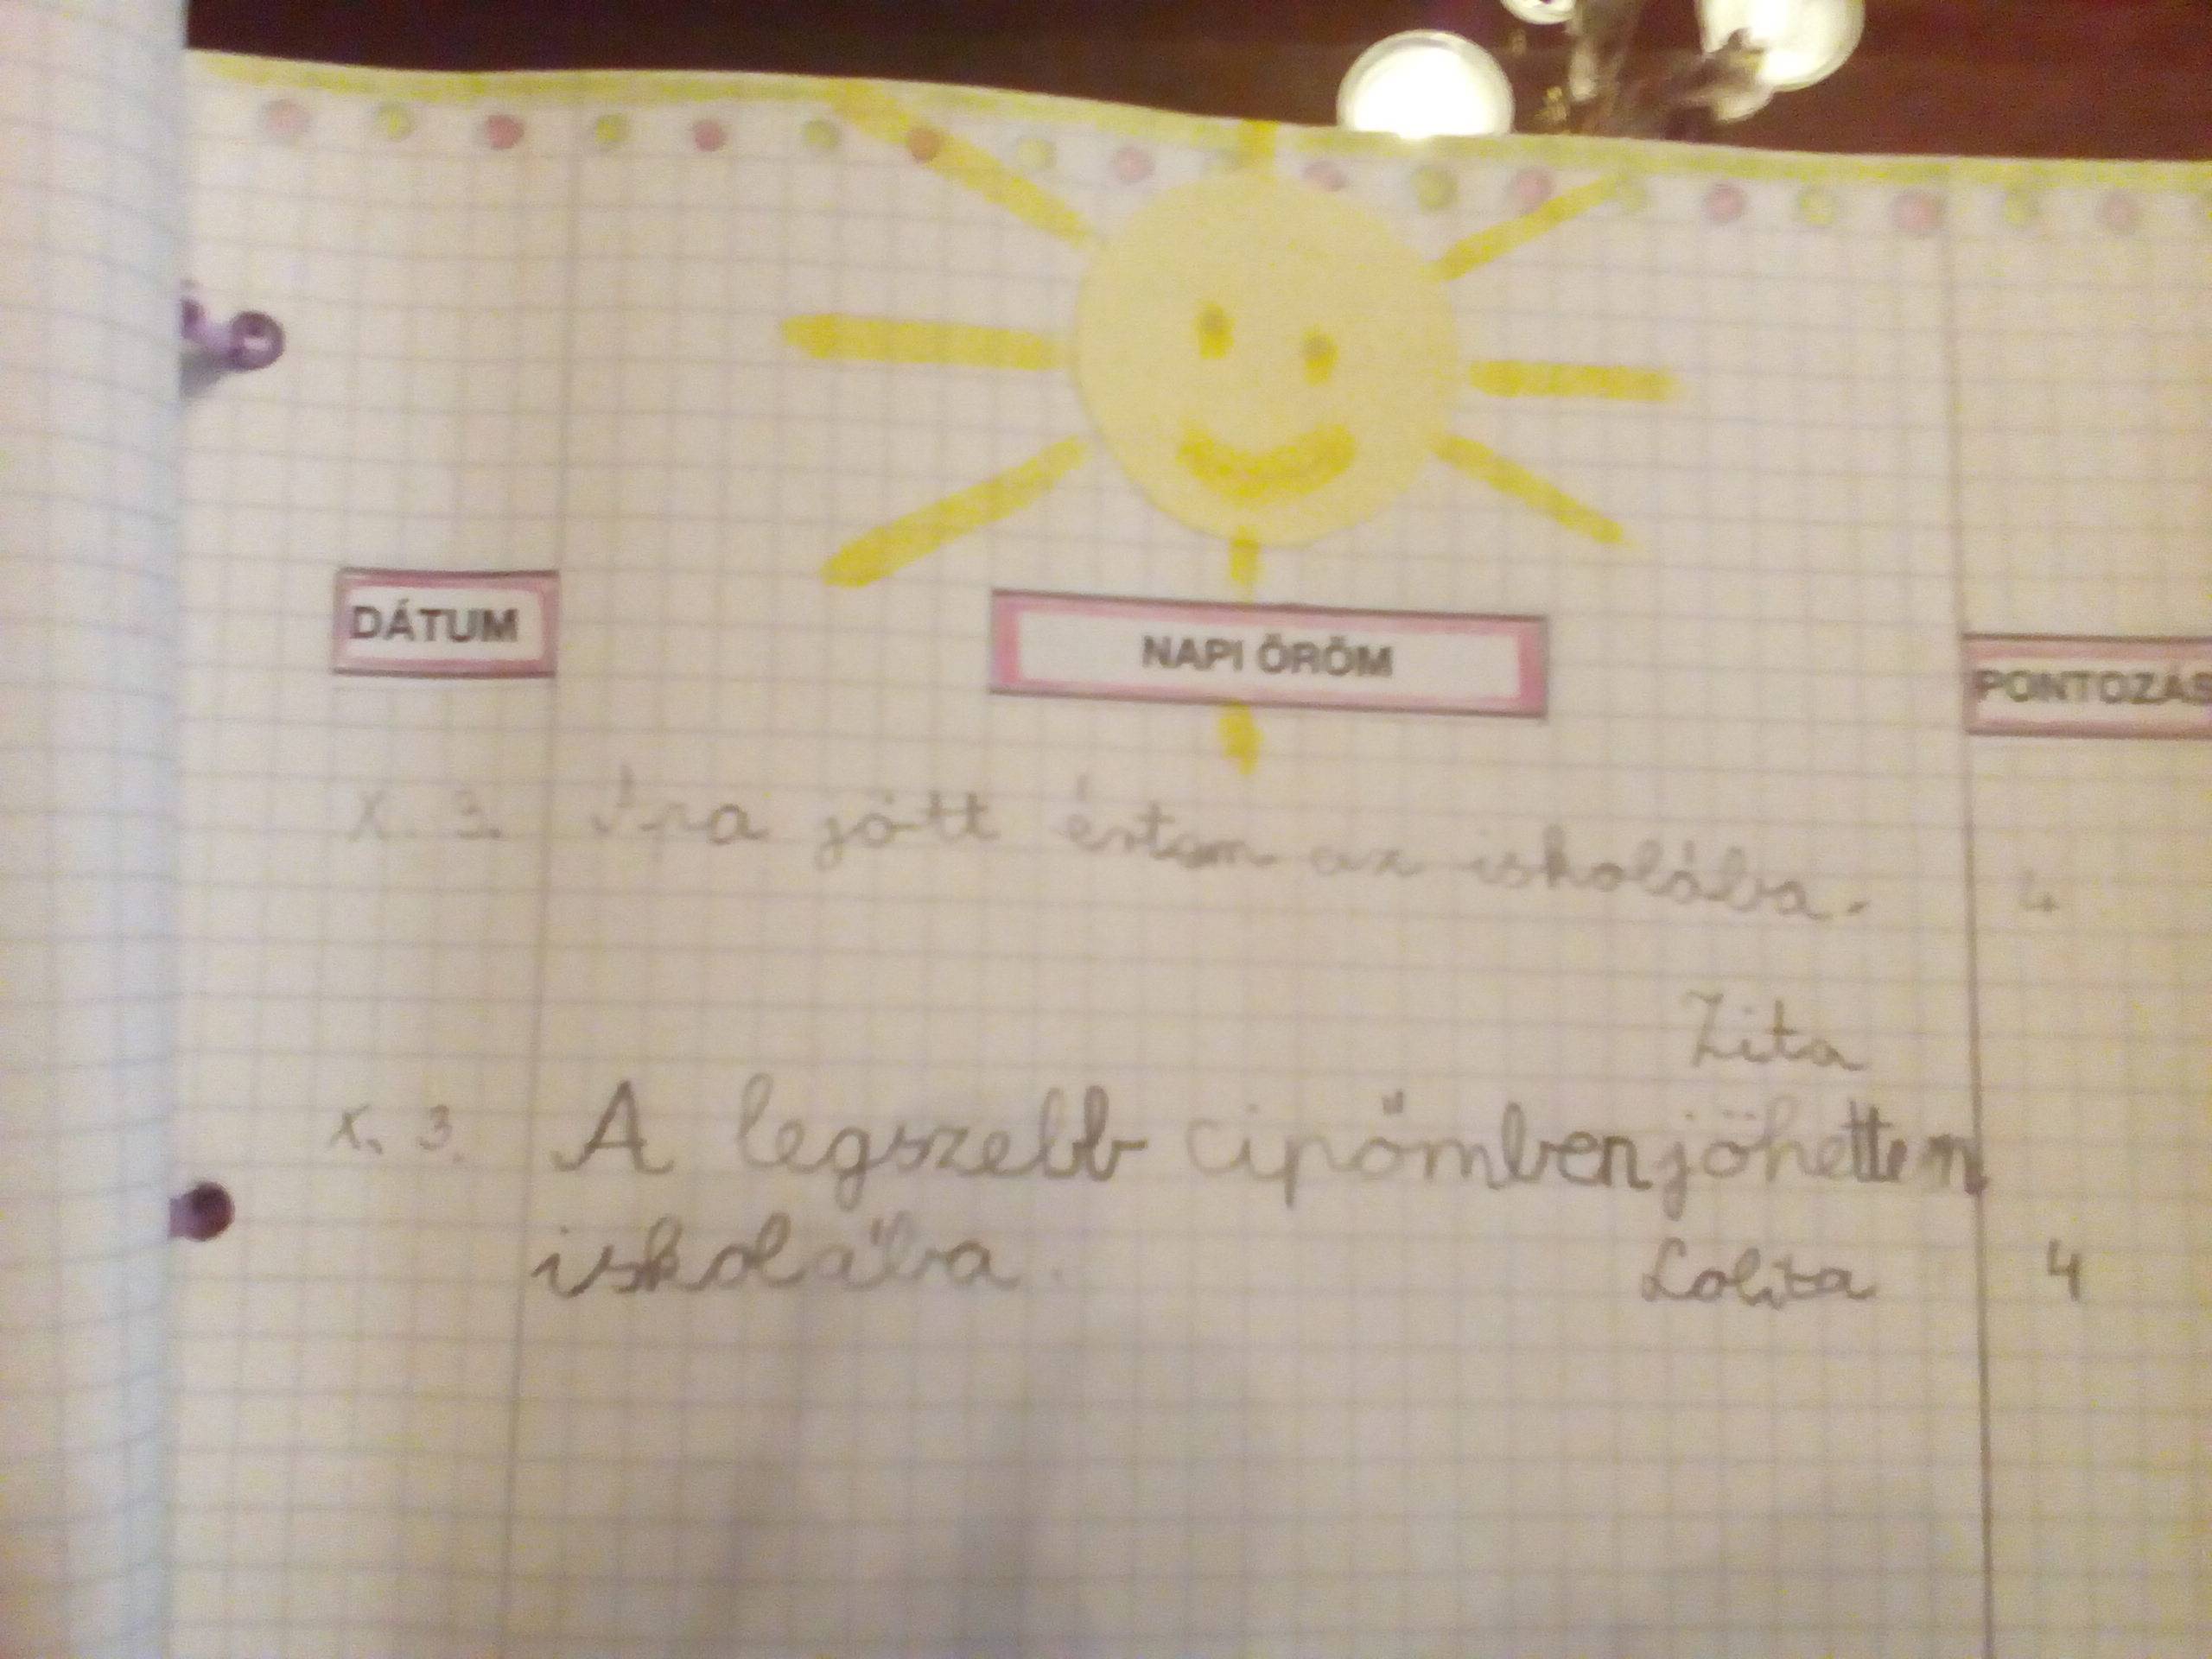 DÁTUM
NAPI ÖRÖM
PONTOZÁS
X. 3. jött értem az iskolába.
Zita
X. 3. A legszebb cipőmben jöhettem
iskolába.
Lolita 4